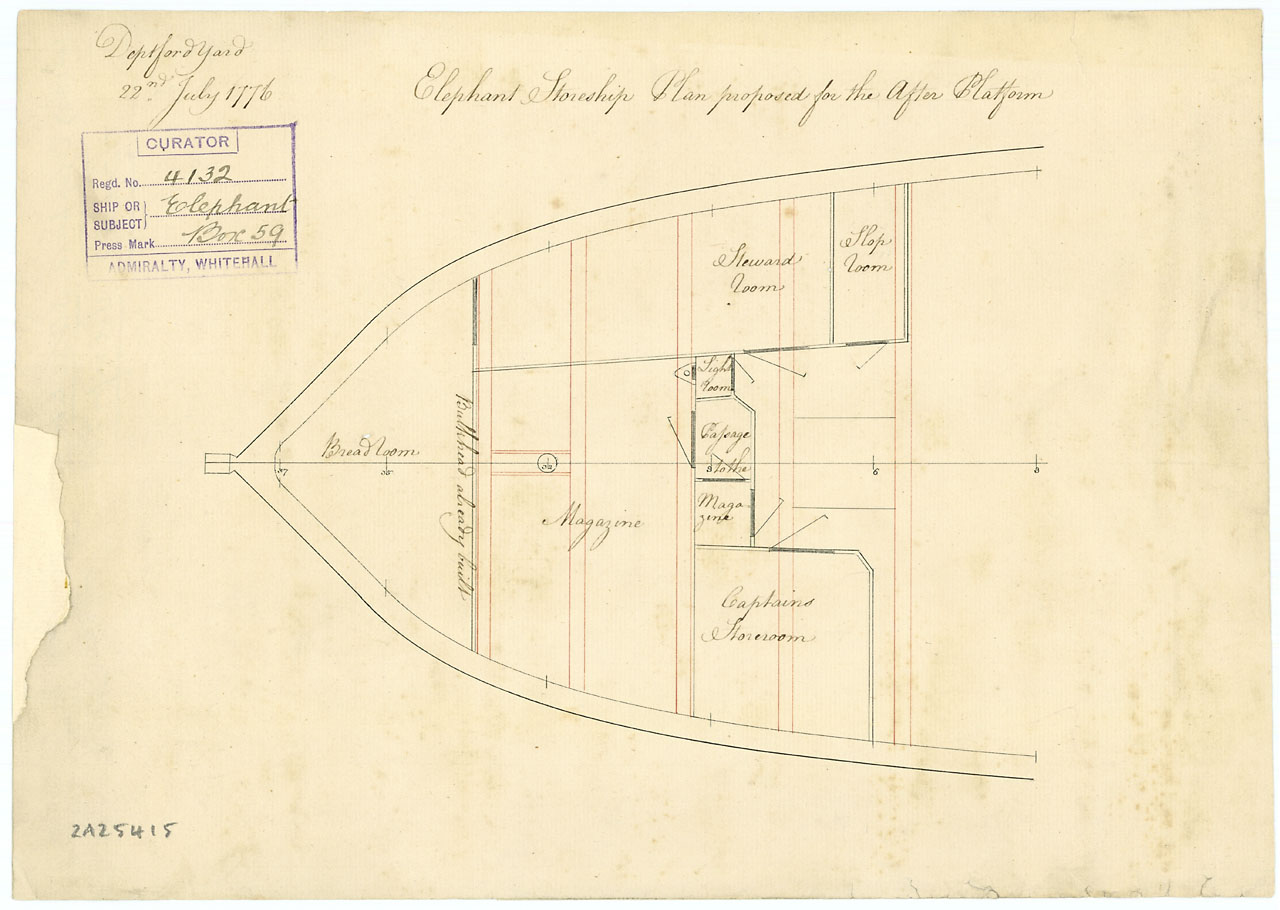 Deptford Yard
22nd. July 1776
Elephant Storeship Plan proposed for the After Platform
CURATOR
Regd. No. 4132
SHIP OR SUBJECT} Elephant
Press Mark Box 59
ADMIRALTY, WHITEHALL
Steward
Room
Slop
Room
Light
Room
Bread Room
Bulkhead already built
Passage
to the
Maga-
zine
Magazine
Captains
Storeroom
2A25415